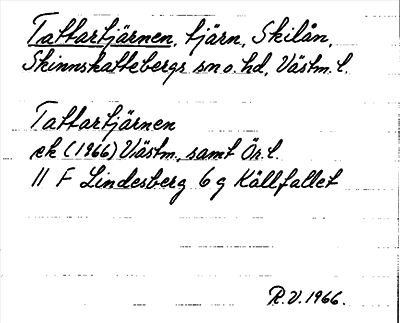 Tattartjärnen, tjärn, Skilån,
Skinnskattebergs sn o. hd, Västm. l.
Tattartjärnen
ek (1966) Västm., samt Ör. l.
11 F Lindesberg 6 g Källfallet
R.V. 1966.